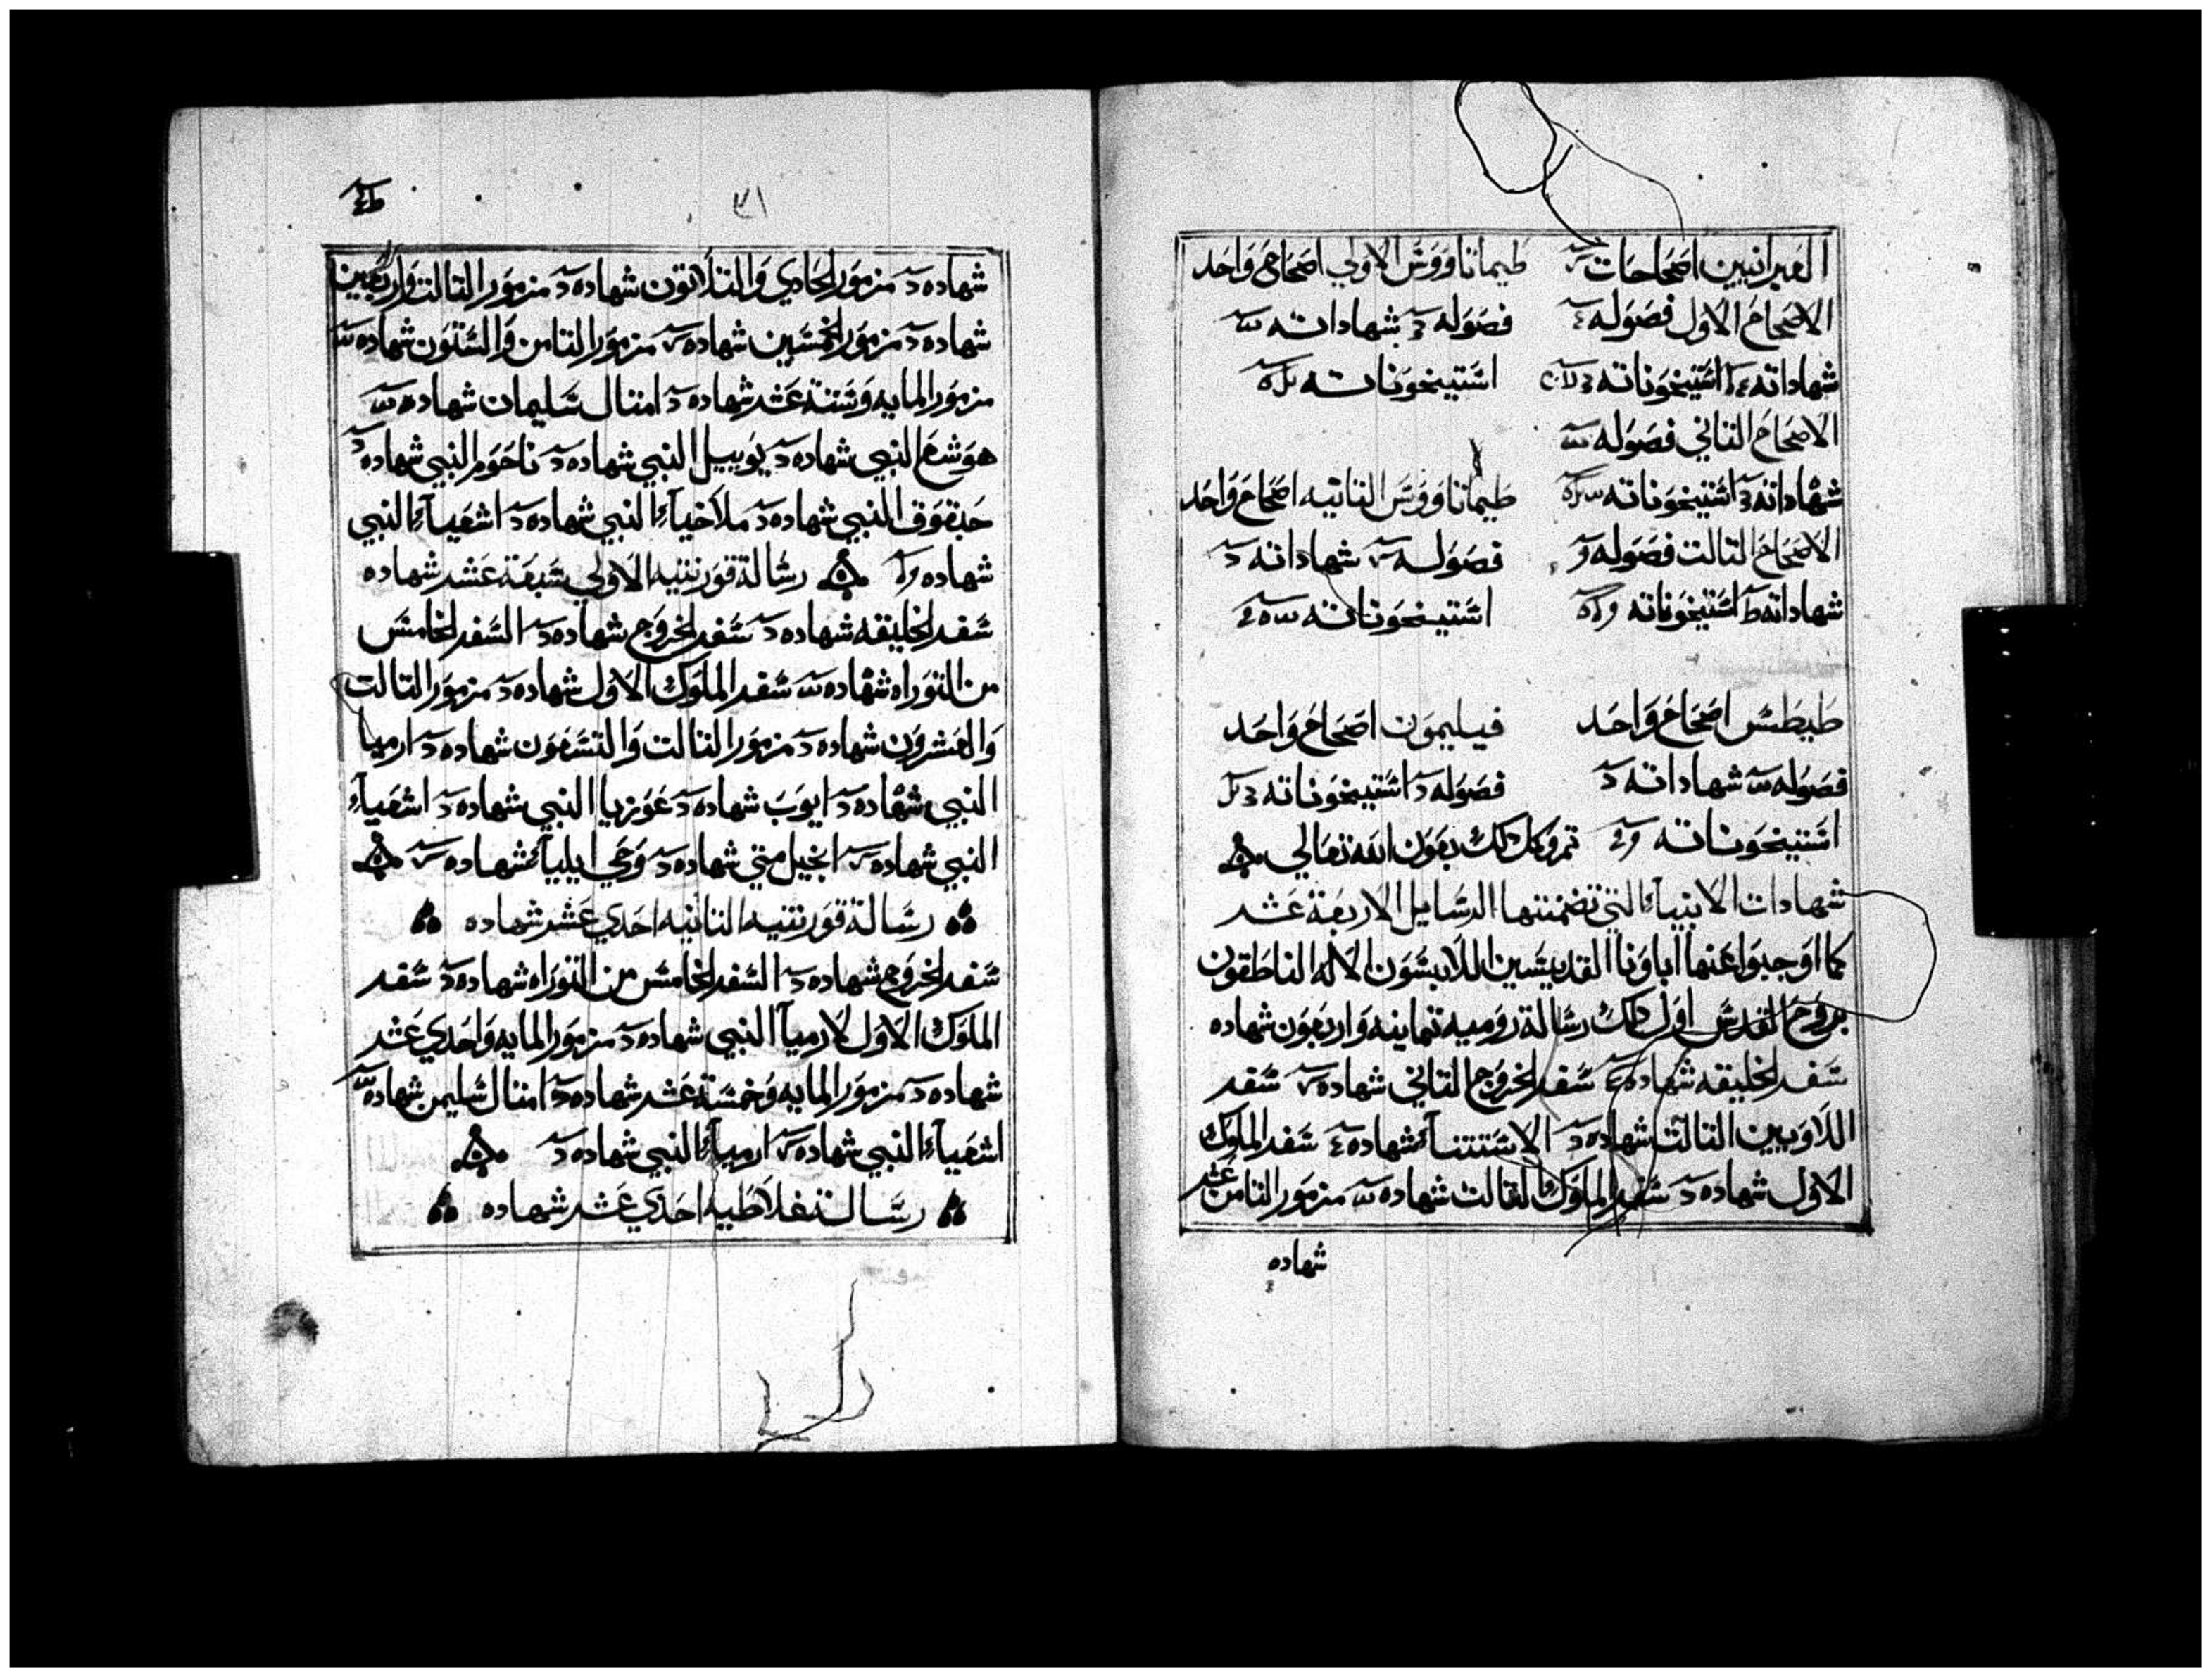 العبرانيين اصحاحات طيماتاووس الاولي اصحاح واحد
الاصحاح الاول فصوله فصوله شهاداته
شهاداته اشتيخوناته اشتيخوناته
الاصحاح التاني فصوله
شهاداته اشتيخوناته طيماتاووس التانيه اصحاح واحد
الاصحاح التالت فصوله فصوله شهاداته
شهاداته اشتيخوناته اشتيخوناته
طيطس اصحاح واحد فيليمون اصحاح واحد
فصوله شهاداته فصوله اشتيخوناته
اشتيخوناته تم وكمل دلك بعون الله تعالي
شهادات الانبياء التي تضمنتها الرسايل الاربعة عشر
كما اوجبوا عنها اباونا القديسين اللابسون الاله الناطقون
بروح القدس اول دلك رسالة روميه تمانيه واربعون شهاده
سفر الخليقه شهاده سفر الخروج التاني شهاده سفر
اللاويين التالت شهاده الاستتناء شهاده سفر الملوك
الاول شهاده سفر الملوك التالت شهاده مزمور التامن عشر
شهاده
٣١
شهاده مزمور الحادي والتلاتون شهاده مزمور التالت واربعين
شهاده مزمور الخمسين شهاده مزمور التامن والستون شهاده
مزمور المايه وستة عشر شهاده امتال سليمان شهاده
هوشع النبي شهاده يوييل النبي شهاده ناحوم النبي شهاده
حبقوق النبي شهاده ملاخياء النبي شهاده اشعياء النبي
شهاده رسالة قورنتيه الاولي سبعة عشر شهاده
سفر الخليقه شهاده سفر الخروج شهاده السفر الخامس
من التوراه شهاده سفر الملوك الاول شهاده مزمور التالت
والعشرون شهاده مزمور التالت والتسعون شهاده ارميا
النبي شهاده ايوب شهاده عوزيا النبي شهاده اشعياء
النبي شهاده انجيل متي شهاده وحي ايلياء شهاده
رسالة قورنتيه التانيه احدي عشر شهاده
سفر الخروج شهاده السفر الخامس من التوراه شهاده سفر
الملوك الاول لارميا النبي شهاده مزمور المايه واحدي عشر
شهاده مزمور المايه وخمسة عشر شهاده امتال سليمن شهاده
اشعياء النبي شهاده ارمياء النبي شهاده
رسالة غلاطيه احدي عشر شهاده